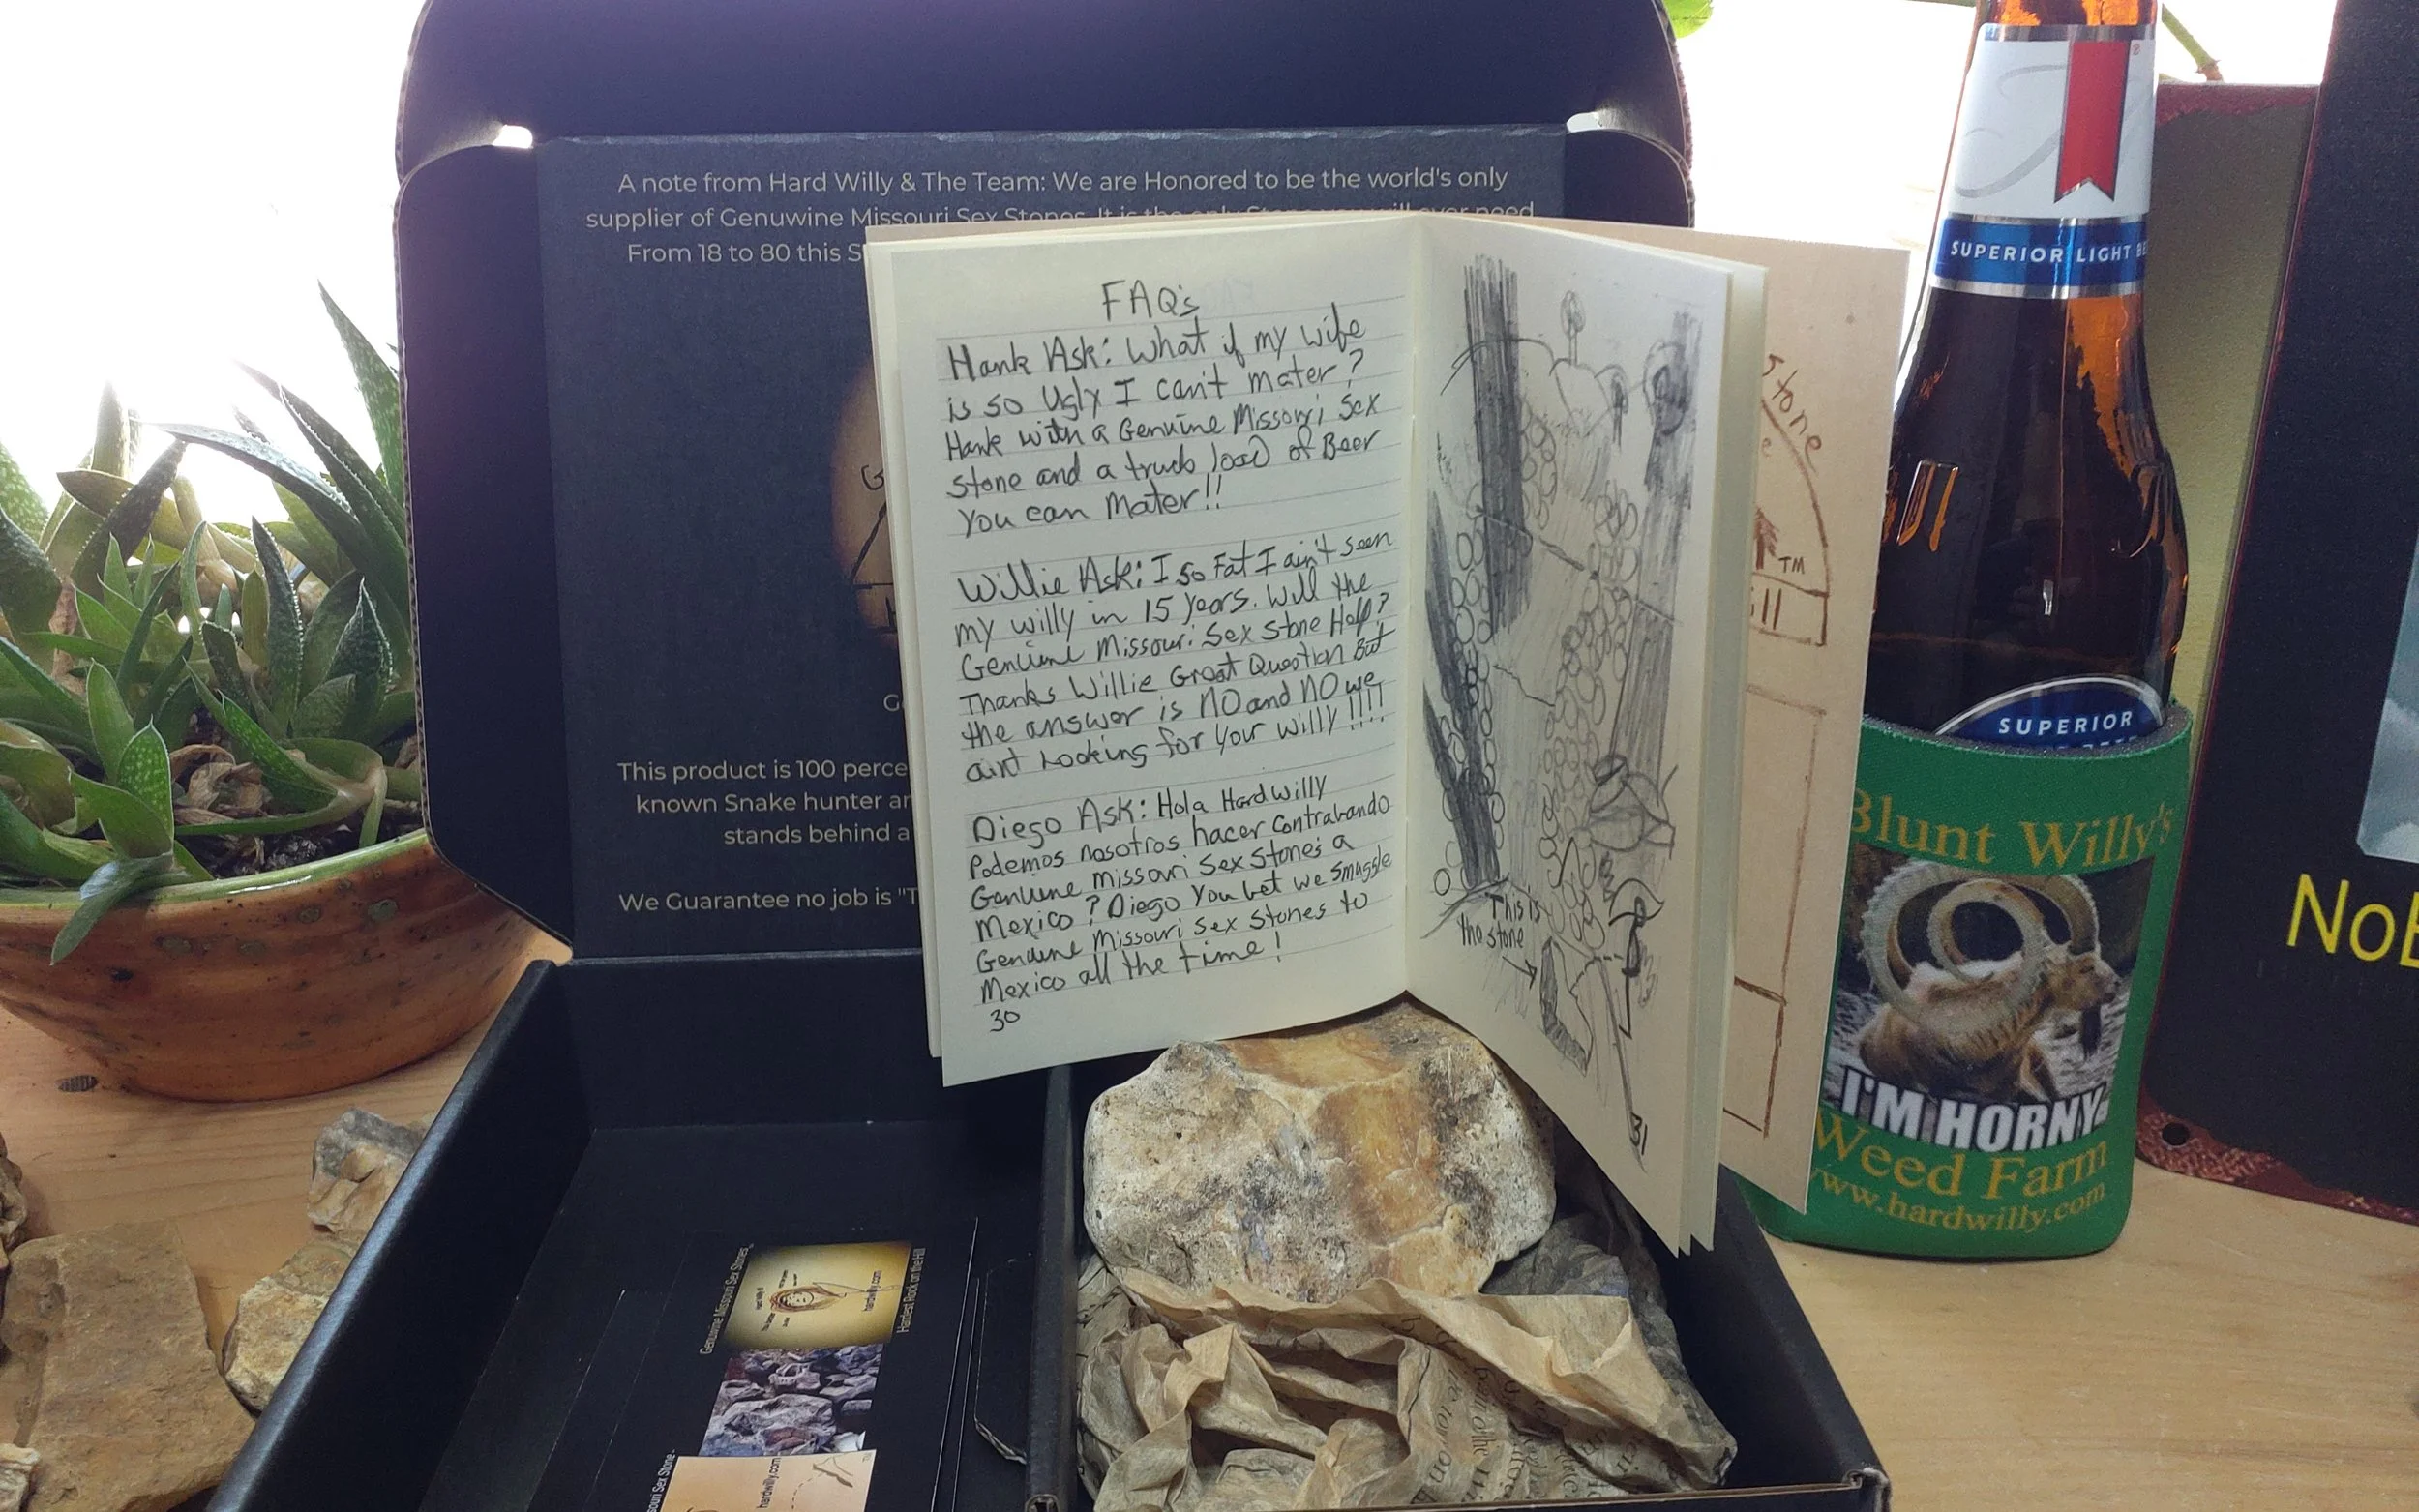 A note from Hard Willy & The Team: We are Honored to be the world's only
supplier of Genuwine Missouri Sex Stones. It is the only Stone you will ever need.
From 18 to 80 this S
This product is 100 perce
known Snake hunter ar
stands behind a
We Guarantee no job is "T
FAQ's
Hank Ask: What if my wife
is so Ugly I can't mater?
Hank with a Genuine Missouri Sex
Stone and a truck load of Beer
You can Mater!!
Willie Ask: I so Fat I ain't seen
my willy in 15 years. Will the
Genuine Missouri Sex Stone Help?
Thanks Willie Great Question But
the answer is NO and NO we
aint Looking for your willy!!!!
Diego Ask: Hola Hardwilly
Podemos nosotros hacer contrabando
Genuine Missouri Sex Stones a
Mexico? Diego You bet we smuggle
Genuine Missouri Sex Stones to
Mexico all the time!
30
This is
the stone
31
Stone
TM
ill
SUPERIOR LIGHT BE
SUPERIOR
Blunt Willy's
I'M HORNY
Weed Farm
www.hardwilly.com
NoB
Genuwine Missouri Sex Stones
hardwilly.com
Hardest Rock on the Hill
souri Sex Stone
hardwilly.com